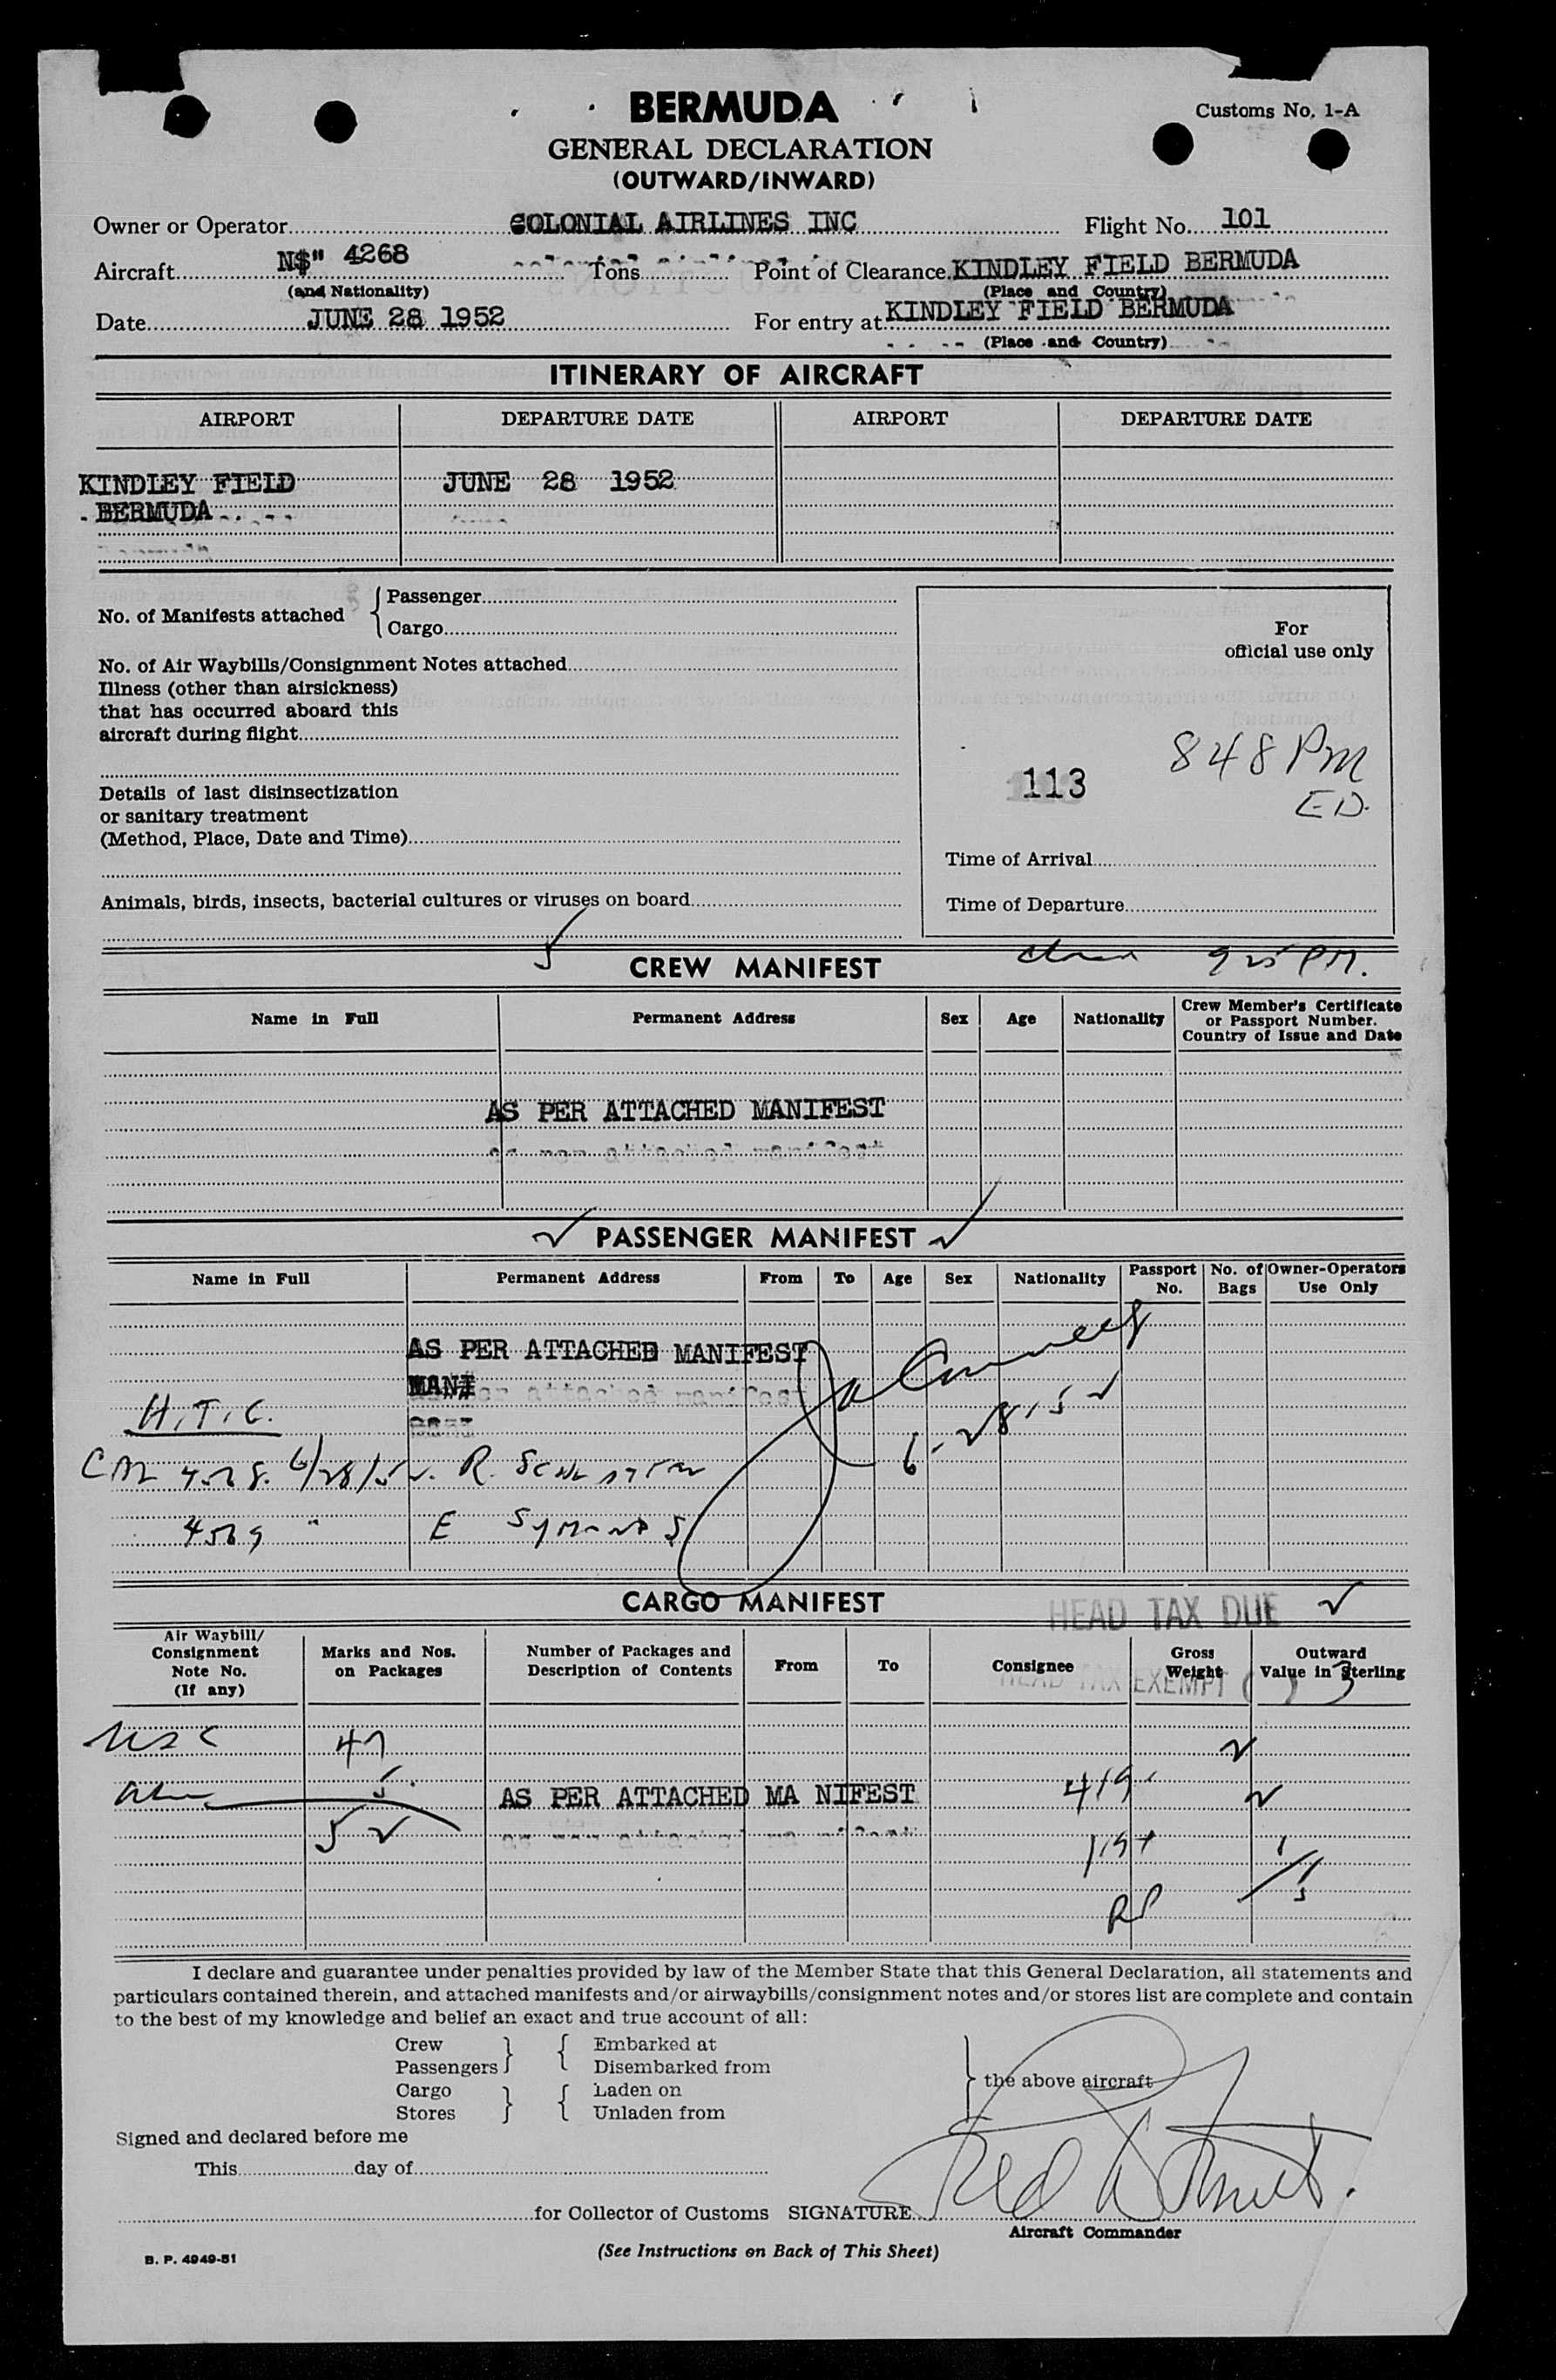 BERMUDA
Customs No. 1-A
GENERAL DECLARATION
(OUTWARD/INWARD)
Owner or Operator COLONIAL AIRLINES INC Flight No. 101
Aircraft N$" 4268 Tons Point of Clearance KINDLEY FIELD BERMUDA
(and Nationality) (Place and Country)
Date JUNE 28 1952 For entry at KINDLEY FIELD BERMUDA
(Place and Country)
ITINERARY OF AIRCRAFT
AIRPORT DEPARTURE DATE AIRPORT DEPARTURE DATE
KINDLEY FIELD JUNE 28 1952
BERMUDA
No. of Manifests attached
Passenger
Cargo
For
official use only
No. of Air Waybills/Consignment Notes attached
Illness (other than airsickness)
that has occurred aboard this
aircraft during flight
848 PM
113
ED.
Details of last disinsectization
or sanitary treatment
(Method, Place, Date and Time)
Time of Arrival
Animals, birds, insects, bacterial cultures or viruses on board
Time of Departure
CREW MANIFEST 925 PM.
Name in Full Permanent Address Sex Age Nationality Crew Member's Certificate
or Passport Number.
Country of Issue and Date
AS PER ATTACHED MANIFEST
as per attached manifest
PASSENGER MANIFEST
Name in Full Permanent Address From To Age Sex Nationality Passport No. No. of Bags Owner-Operators Use Only
AS PER ATTACHED MANIFEST
MANI
H.T.C.
6-28-52
6/28/52 R.
4529 " E SYMONDS
CARGO MANIFEST HEAD TAX DUE
Air Waybill/
Consignment
Note No.
(If any)
Marks and Nos.
on Packages
Number of Packages and
Description of Contents
From To Consignee
Gross
Weight
Outward
Value in Sterling
HEAD TAX EXEMPT ( ) 3
USC 47
5.
AS PER ATTACHED MA NIFEST
52
I declare and guarantee under penalties provided by law of the Member State that this General Declaration, all statements and
particulars contained therein, and attached manifests and/or airwaybills/consignment notes and/or stores list are complete and contain
to the best of my knowledge and belief an exact and true account of all:
Crew Embarked at
Passengers Disembarked from
the above aircraft
Cargo Laden on
Stores Unladen from
Signed and declared before me
This day of
for Collector of Customs SIGNATURE
Aircraft Commander
(See Instructions on Back of This Sheet)
B. P. 4949-51